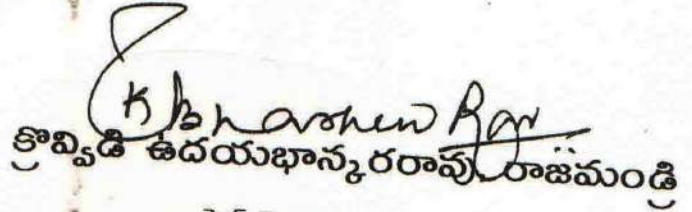 K Bhaskara Rao
క్రొవ్విడి ఉదయభాస్కరరావు, రాజమండ్రి